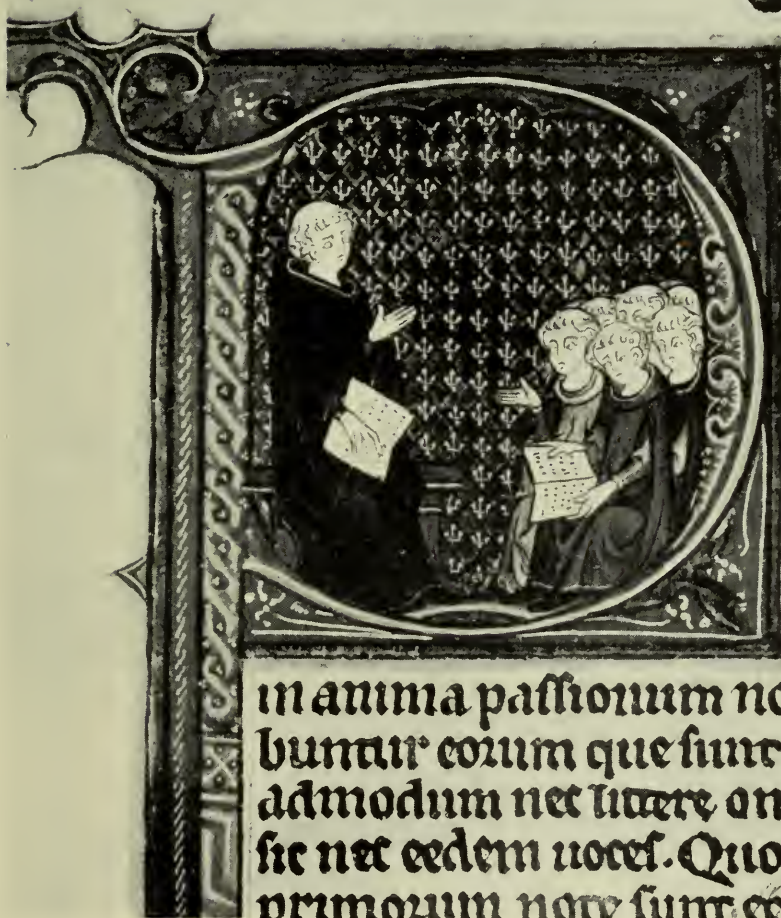 in anima passionum no
buntur eorum que sunt
admodum nec littere om
sic nec eedem uoces. Quo
primorum note sunt eo